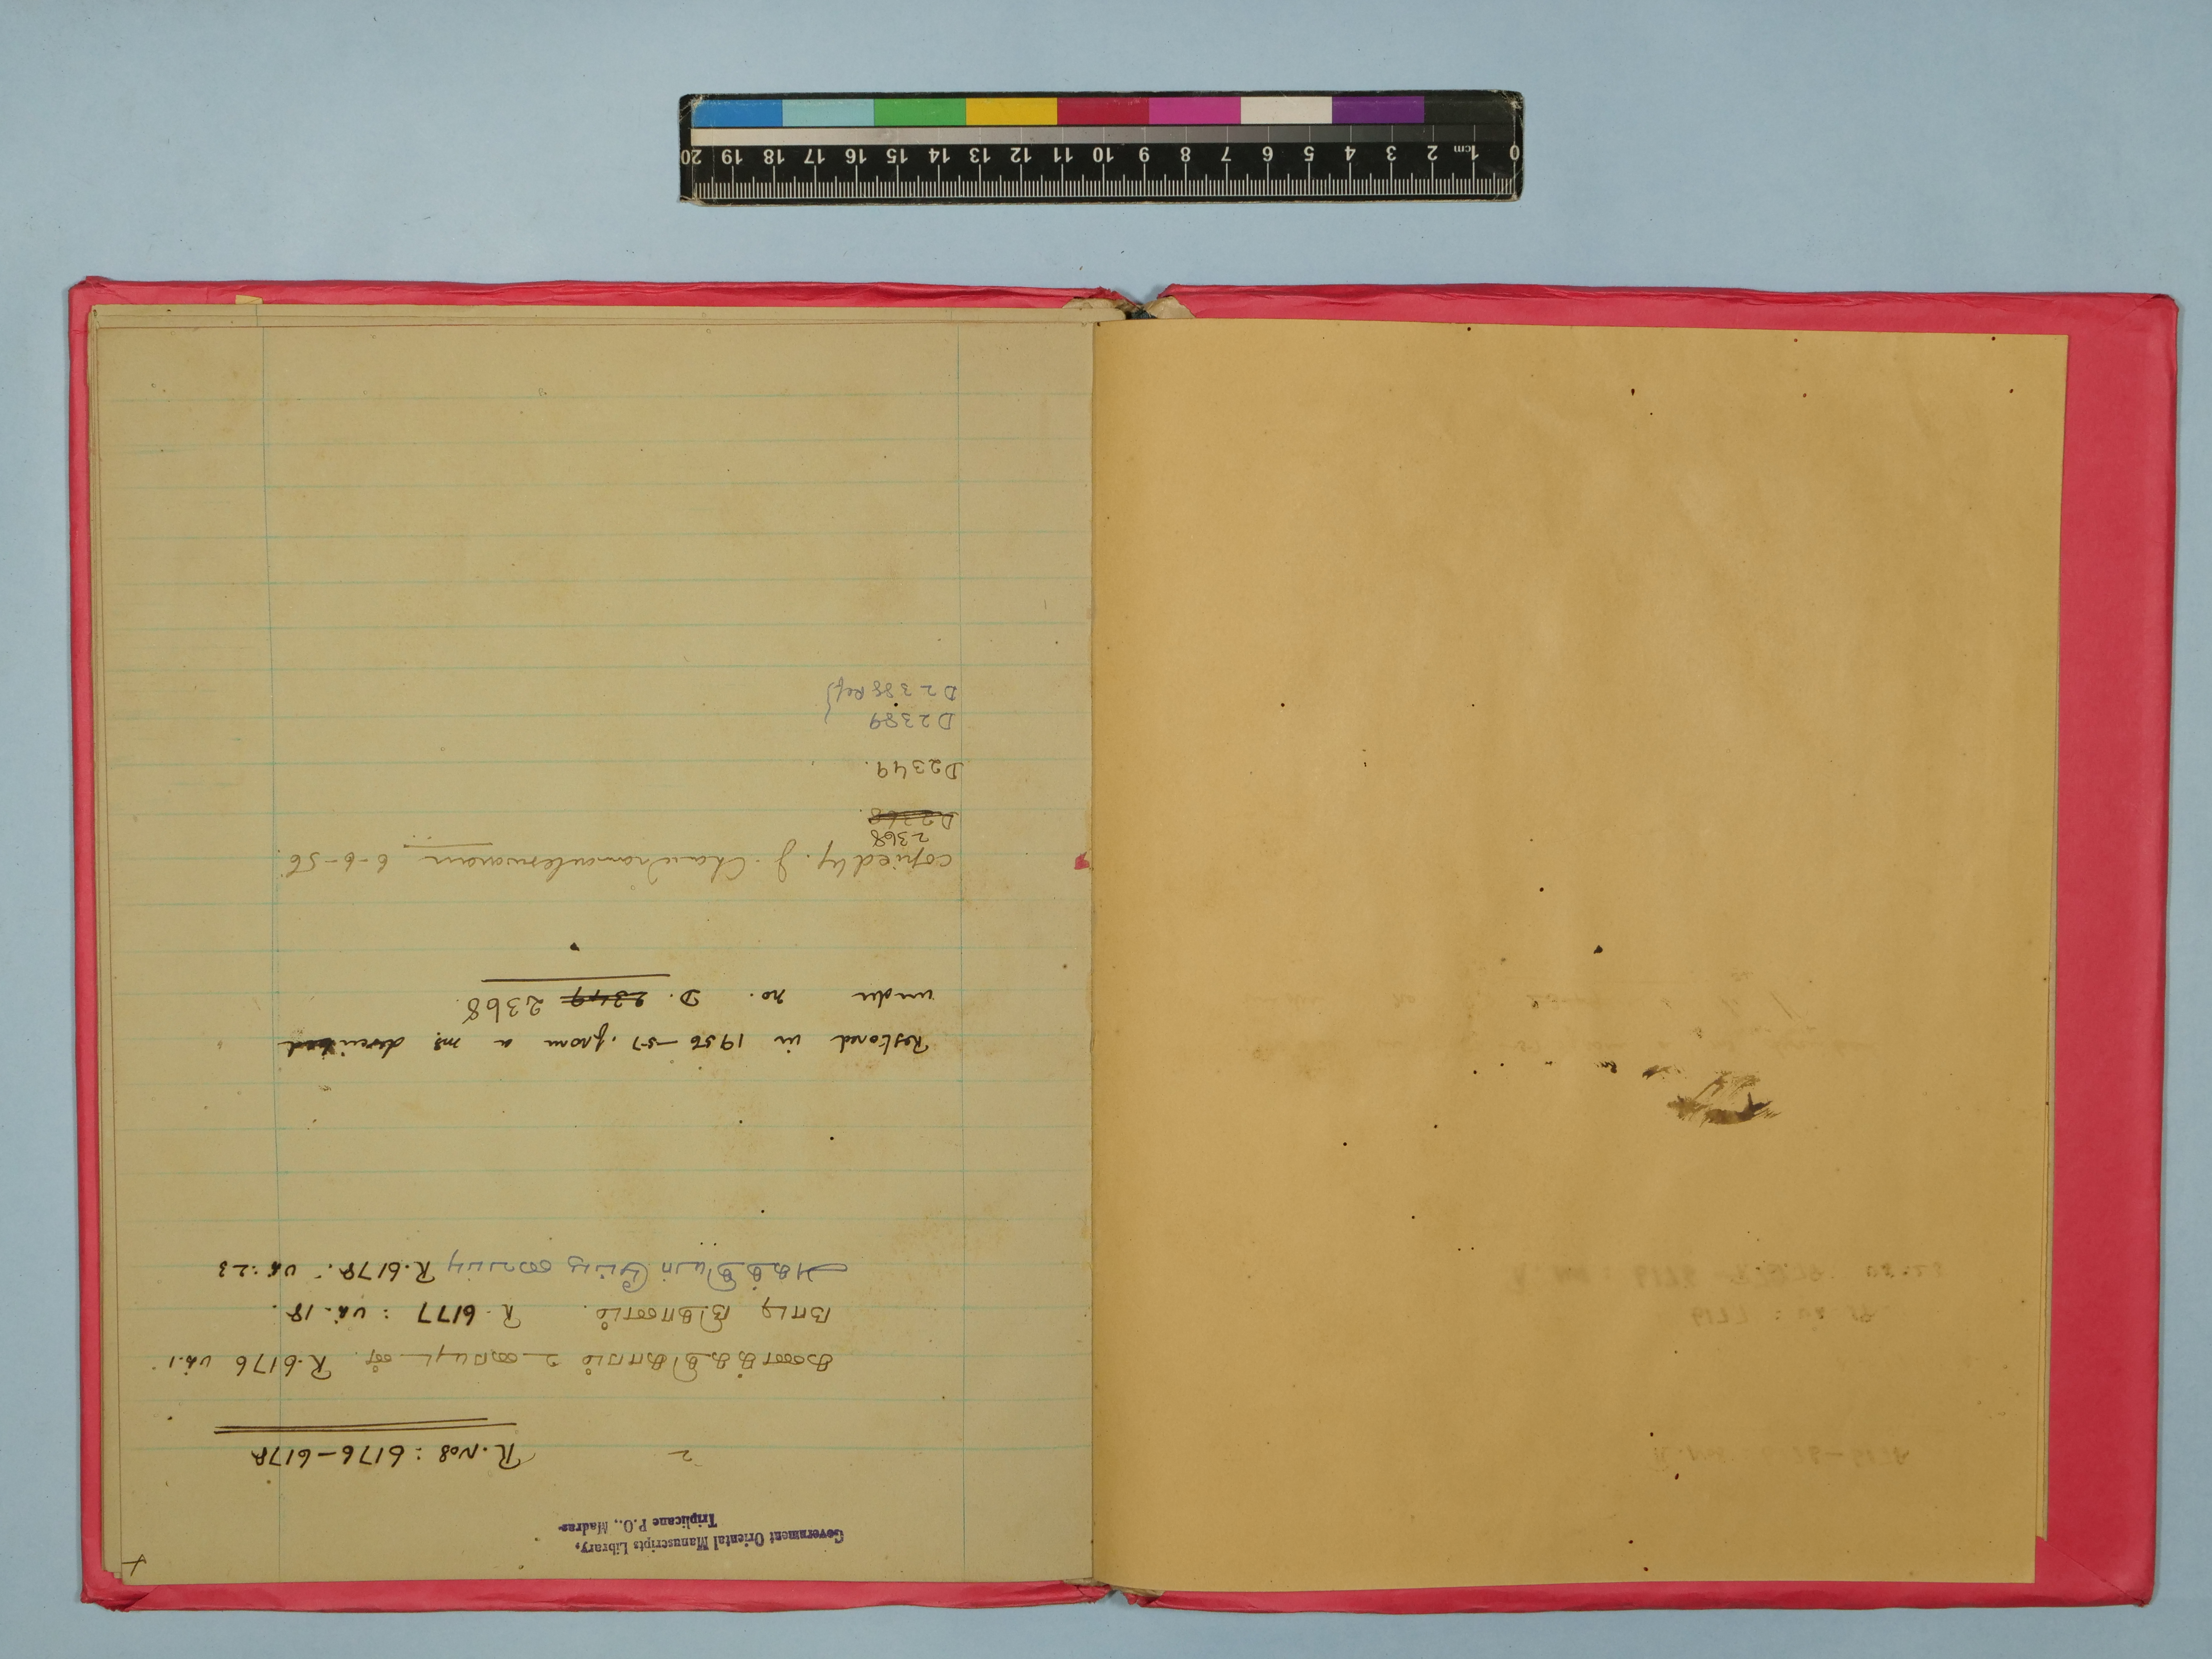 Government Oriental Manuscripts Library,
Triplicane P.O., Madras-
2 R. Nos: 6176-6178
கணக்கதிகாரம் உரையுடன். R.6176 பக்.1
நாடி நிதானம். R. 6177 : பக். 18.
R.6178. பக்:23
Restored in 1956-57, from a ms described
under no. D. 2349 2368.
copied by. J. 6-6-56.
2368
D2368.
D2349.
D2389
D2388 Ref
0 1cm 2 3 4 5 6 7 8 9 10 11 12 13 14 15 16 17 18 19 20